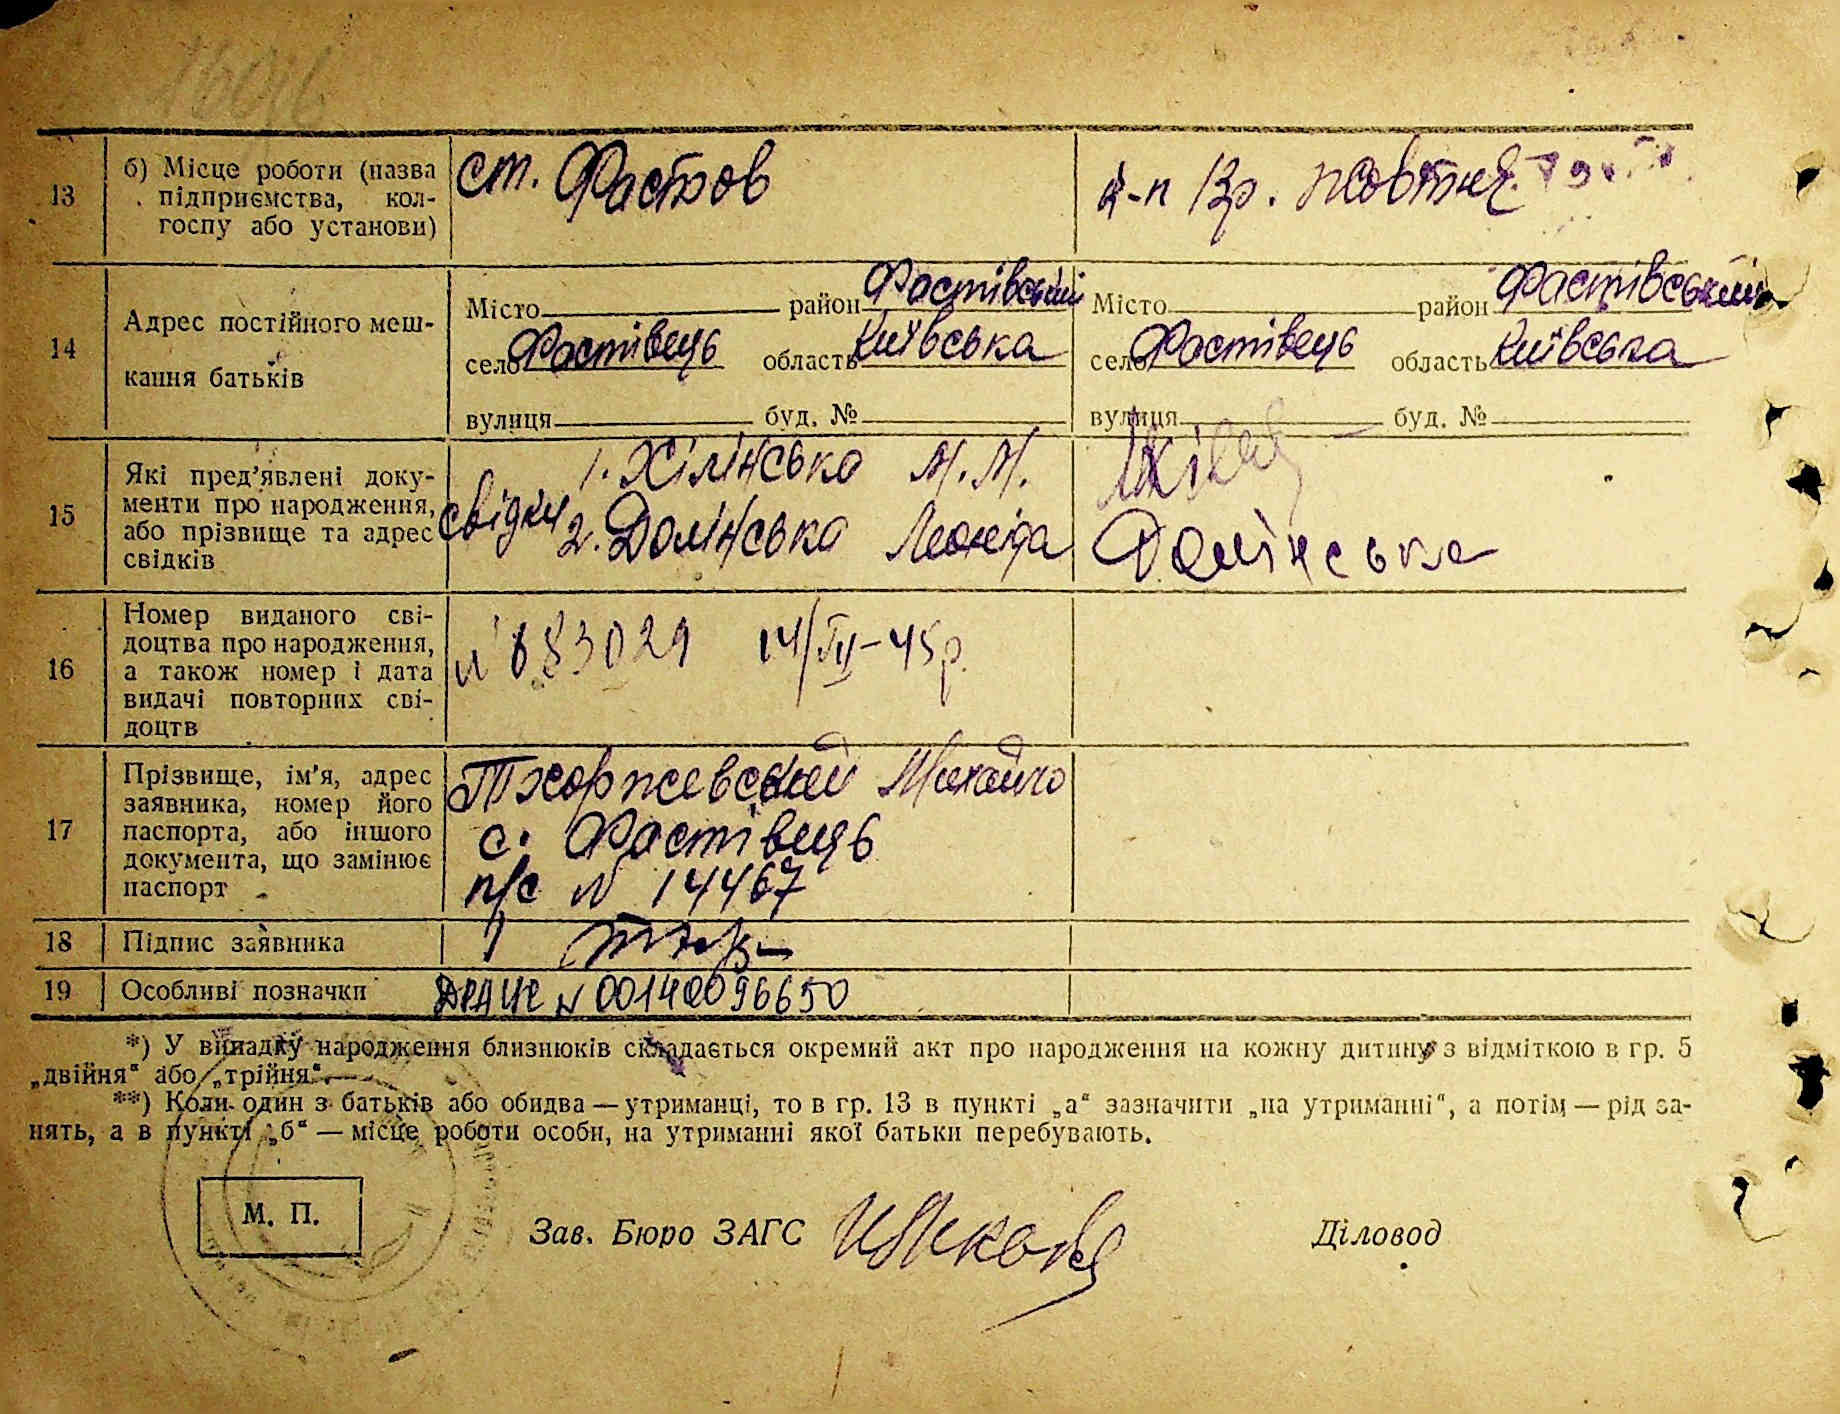 1606
13 б) Місце роботи (назва підприємства, колгоспу або установи) ст. Фастов к-п 13р. Жовтня
14 Адрес постійного мешкання батьків
Місто район Фастівський Місто район Фастівський
село Фастівець область Київська село Фастівець область Київська
вулиця буд. № вулиця буд. №
15 Які пред'явлені документи про народження, або прізвище та адрес свідків
свідки 1. Хілінська М. М.
2. Долінська Леоніда Долінська
16 Номер виданого свідоцтва про народження, а також номер і дата видачі повторних свідоцтв
№ 683029 14/IV-45р.
17 Прізвище, ім'я, адрес заявника, номер його паспорта, або іншого документа, що замінює паспорт
Тхоржевский Михайло
с. Фастівець
п/с № 14467
18 Підпис заявника
19 Особливі позначки ДРАЦС № 00140096650
*) У випадку народження близнюків складається окремий акт про народження на кожну дитину з відміткою в гр. 5
„двійня“ або „трійня“.
**) Коли один з батьків або обидва — утриманці, то в гр. 13 в пункті „а“ зазначити „на утриманні“, а потім — рід за-
нять, а в пункті „б“ — місце роботи особи, на утриманні якої батьки перебувають.
М. П.
Зав. Бюро ЗАГС Діловод